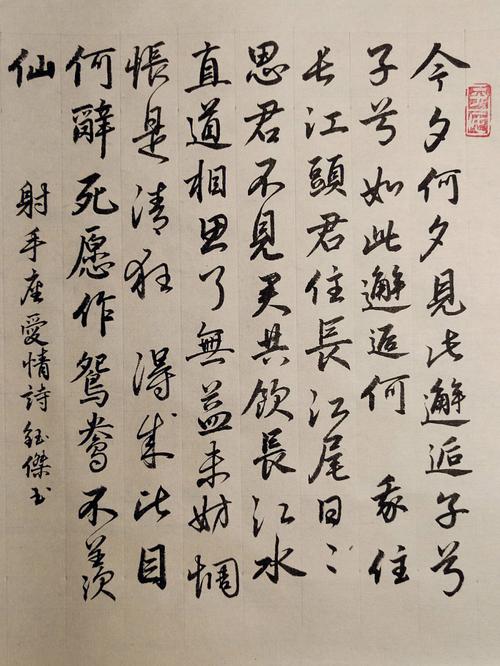 今夕何夕見此邂逅子兮
子兮如此邂逅何 我住
长江頭君住長江尾日〻
思君不見君共飲長江水
直道相思了無益未妨惆
悵是清狂 得成比目
何辭死愿作鴛鴦不羡
仙
射手座愛情詩 鈺傑书